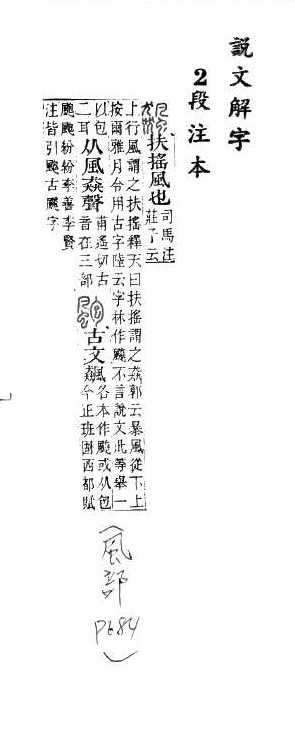 說文解字
2段注本
扶搖風也
司馬注
莊子云
上行風謂之扶搖釋天曰扶搖謂之猋郭云暴風從下上
按爾雅月令用古字陸云字林作飆不言說文此等舉一
以包
二耳
从風猋聲
甫遙切古
音在三部
古文飆
各本作颮或从包
今正班固西都賦
颮颮紛紛李善李賢
注皆引颮古飆字
(風部 P684)